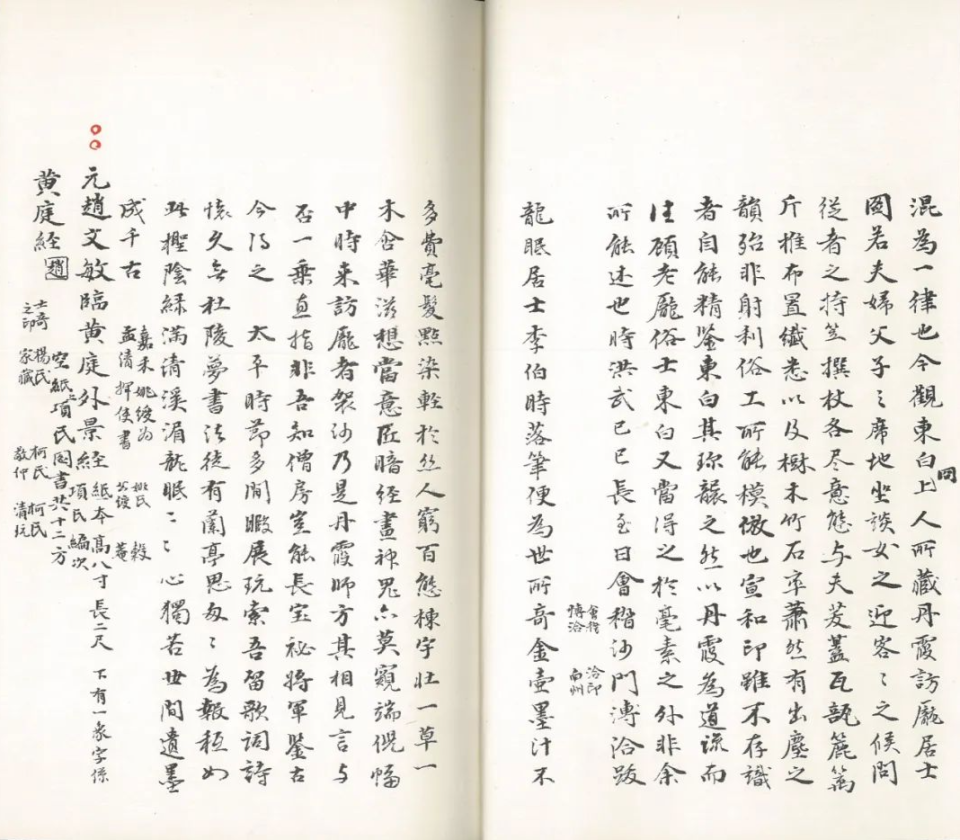 混為一律也今觀東白上人所藏丹霞訪龎居士
同
圖若夫婦父子之席地坐談女之迎客之候問
從者之持笠撰杖各尽意態与夫茇蓋瓦甑簏篱
斤推布置纖悉以及樹木竹石率蕭然有出塵之
韻殆非射利俗工所能模倣也宣和印雖不存識
者自能精鉴東白其珎襲之然以丹霞為道流而
注顧老龎俗士東白又當得之於毫素之外非余
所能述也時洪武己巳長至日會稽沙門溥洽跋
會稽溥洽
洽印南州
龍眠居士李伯時落筆便為世所奇金壺墨汁不
多費毫髮點染軽於丝人窮百態棟宇壮一草一
木含華滋想當意匠暗经畫神鬼亦莫窺端倪幅
中時来訪龎者袈沙乃是丹霞师方其相見言与
否一乗直指非吾知僧房豈能長宝祕將軍鉴古
今得之太平時節多閒暇展玩索吾留歌詞詩
懐久無杜陵夢書法徒有蘭亭思匆〻為報極如
此檉陰緑满清溪湄龍眠〻〻心獨苦世间遺墨
成千古
嘉禾姚绶為
孟清揮使書
姚氏公绶
穀菴
元趙文敏臨黄庭外景经紙本高八寸長二尺
下有一篆字係
黄庭经
趙
項氏編次
空紙項氏圖書共十二方
士奇之印
楊氏家藏
柯氏敬仲
柯氏清玩